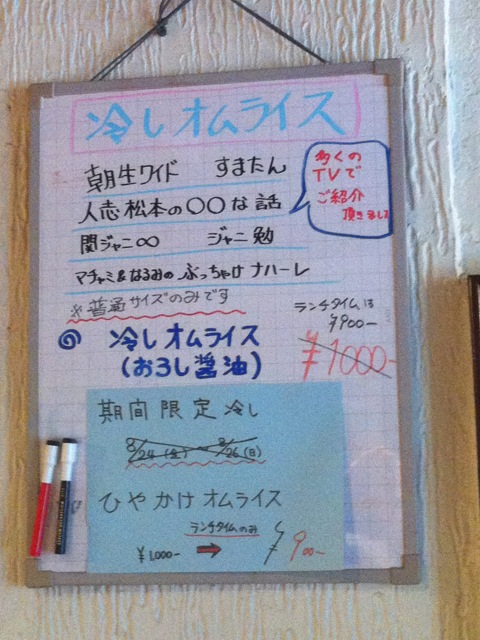 冷しオムライス
朝生ワイド すまたん
人志松本の〇〇な話
関ジャニ∞ ジャニ勉
マチャミ&なるみの ぶっちゃけ ナハーレ
多くの
TVで
ご紹介
頂きました
※普通サイズのみです
ランチタイムは
¥900-
◎ 冷しオムライス
(おろし醤油)
¥1000-
期間限定冷し
8/24(金)~8/26(日)
ひやかけオムライス
ランチタイムのみ
¥1,000- ➡ ¥900-